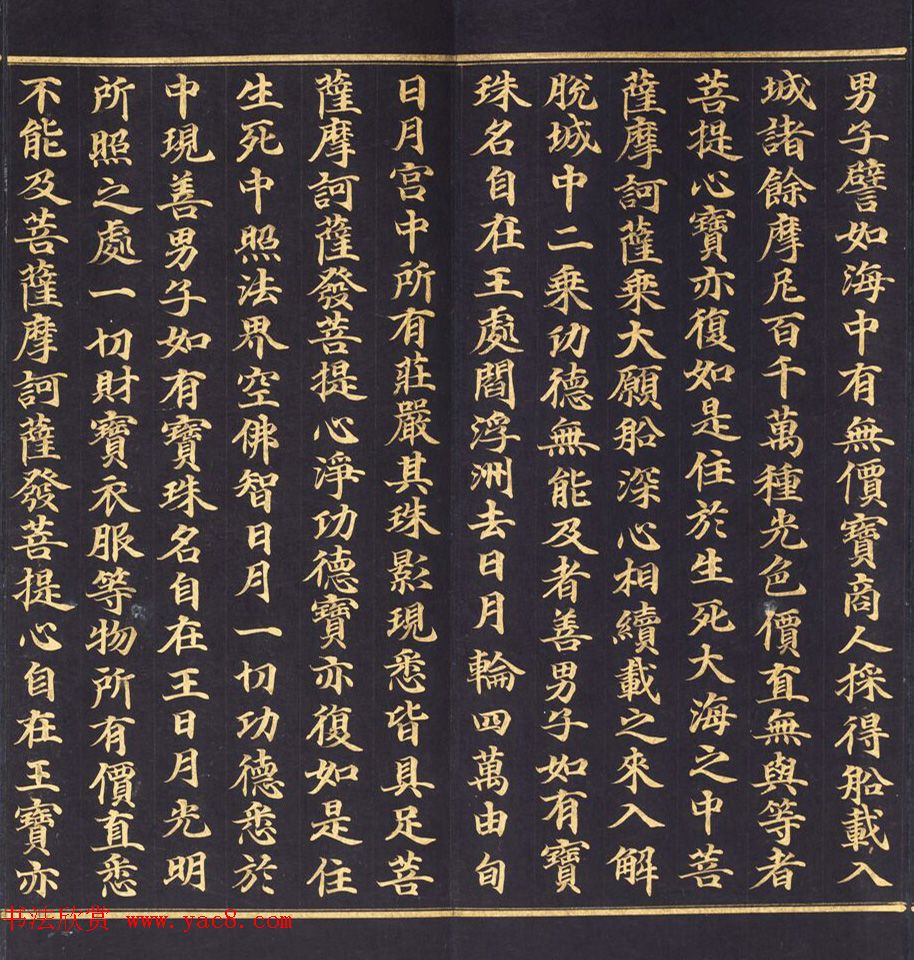 男子譬如海中有無價寶商人採得船載入
城諸餘摩尼百千萬種光色價直無與等者
菩提心寶亦復如是住於生死大海之中菩
薩摩訶薩乗大願船深心相續載之來入解
脫城中二乗功德無能及者善男子如有寶
珠名自在王處閻浮洲去日月輪四萬由旬
日月宮中所有莊嚴其珠影現悉皆具足菩
薩摩訶薩發菩提心淨功德寶亦復如是住
生死中照法界空佛智日月一切功德悉於
中現善男子如有寶珠名自在王日月光明
所照之處一切財寶衣服等物所有價直悉
不能及菩薩摩訶薩發菩提心自在王寶亦
书法欣赏 www.yac8.com